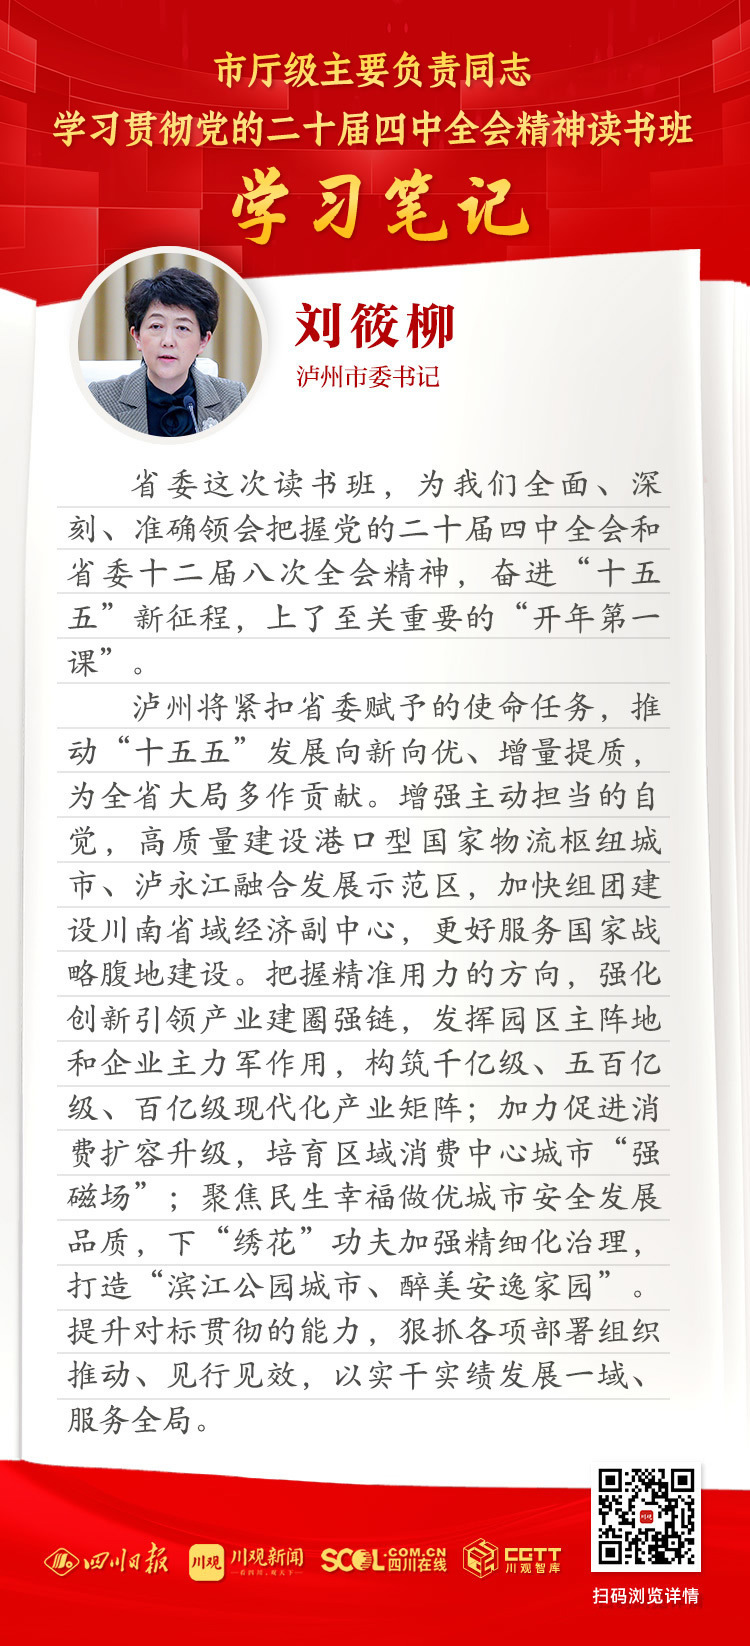 市厅级主要负责同志
学习贯彻党的二十届四中全会精神读书班
学习笔记
刘筱柳
泸州市委书记
省委这次读书班，为我们全面、深
刻、准确领会把握党的二十届四中全会和
省委十二届八次全会精神，奋进“十五
五”新征程，上了至关重要的“开年第一
课”。
泸州将紧扣省委赋予的使命任务，推
动“十五五”发展向新向优、增量提质，
为全省大局多作贡献。增强主动担当的自
觉，高质量建设港口型国家物流枢纽城
市、泸永江融合发展示范区，加快组团建
设川南省域经济副中心，更好服务国家战
略腹地建设。把握精准用力的方向，强化
创新引领产业建圈强链，发挥园区主阵地
和企业主力军作用，构筑千亿级、五百亿
级、百亿级现代化产业矩阵；加力促进消
费扩容升级，培育区域消费中心城市“强
磁场”；聚焦民生幸福做优城市安全发展
品质，下“绣花”功夫加强精细化治理，
打造“滨江公园城市、醉美安逸家园”。
提升对标贯彻的能力，狠抓各项部署组织
推动、见行见效，以实干实绩发展一域、
服务全局。
四川日报
川观 川观新闻
一看四川，观天下一
SCOL.COM.CN
四川在线
CGTT
川观智库
川观
扫码浏览详情